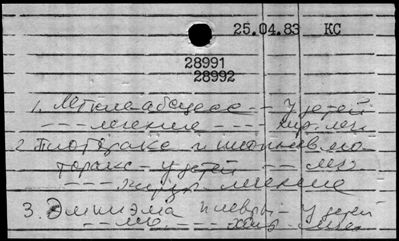 25.04.83 КС
28991
28992
1. Легкие - абсцесс -- у детей
-- лечение -- хир. леч.
2. Пиоторакс и пиопневмо-
торакс - у детей -- леч
--- хирур лечение
3. Эмпиэма плевры - у детей